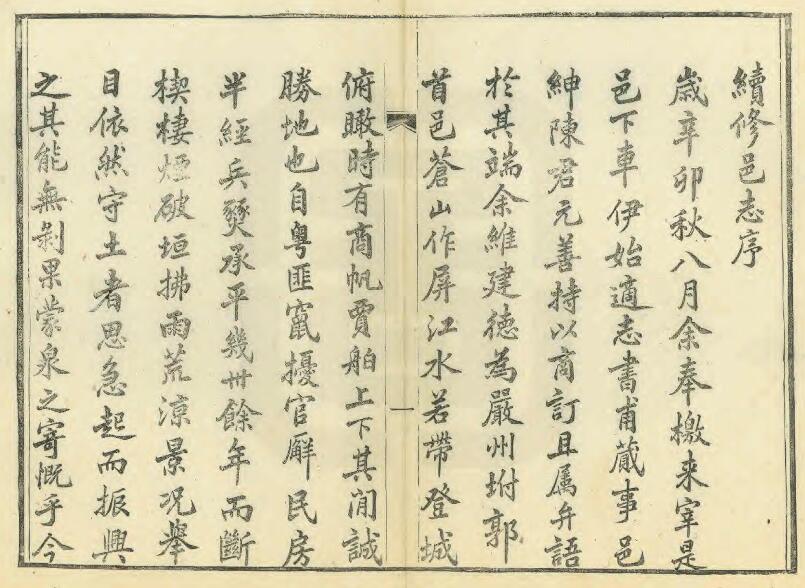 續修邑志序
歲辛卯秋八月余奉檄來宰是
邑下車伊始適志書甫蕆事邑
紳陳君元善持以商訂且属弁語
於其端余維建德為嚴州坿郭
首邑蒼山作屏江水若帶登城
俯瞰時有商帆賈舶上下其間誠
勝地也自粵匪竄擾官廨民房
半經兵燹承平幾卅餘年而斷
楔棲煙破垣拂雨荒涼景况舉
目依然守土者思急起而振興
之其能無剝果蒙泉之寄慨乎今
一